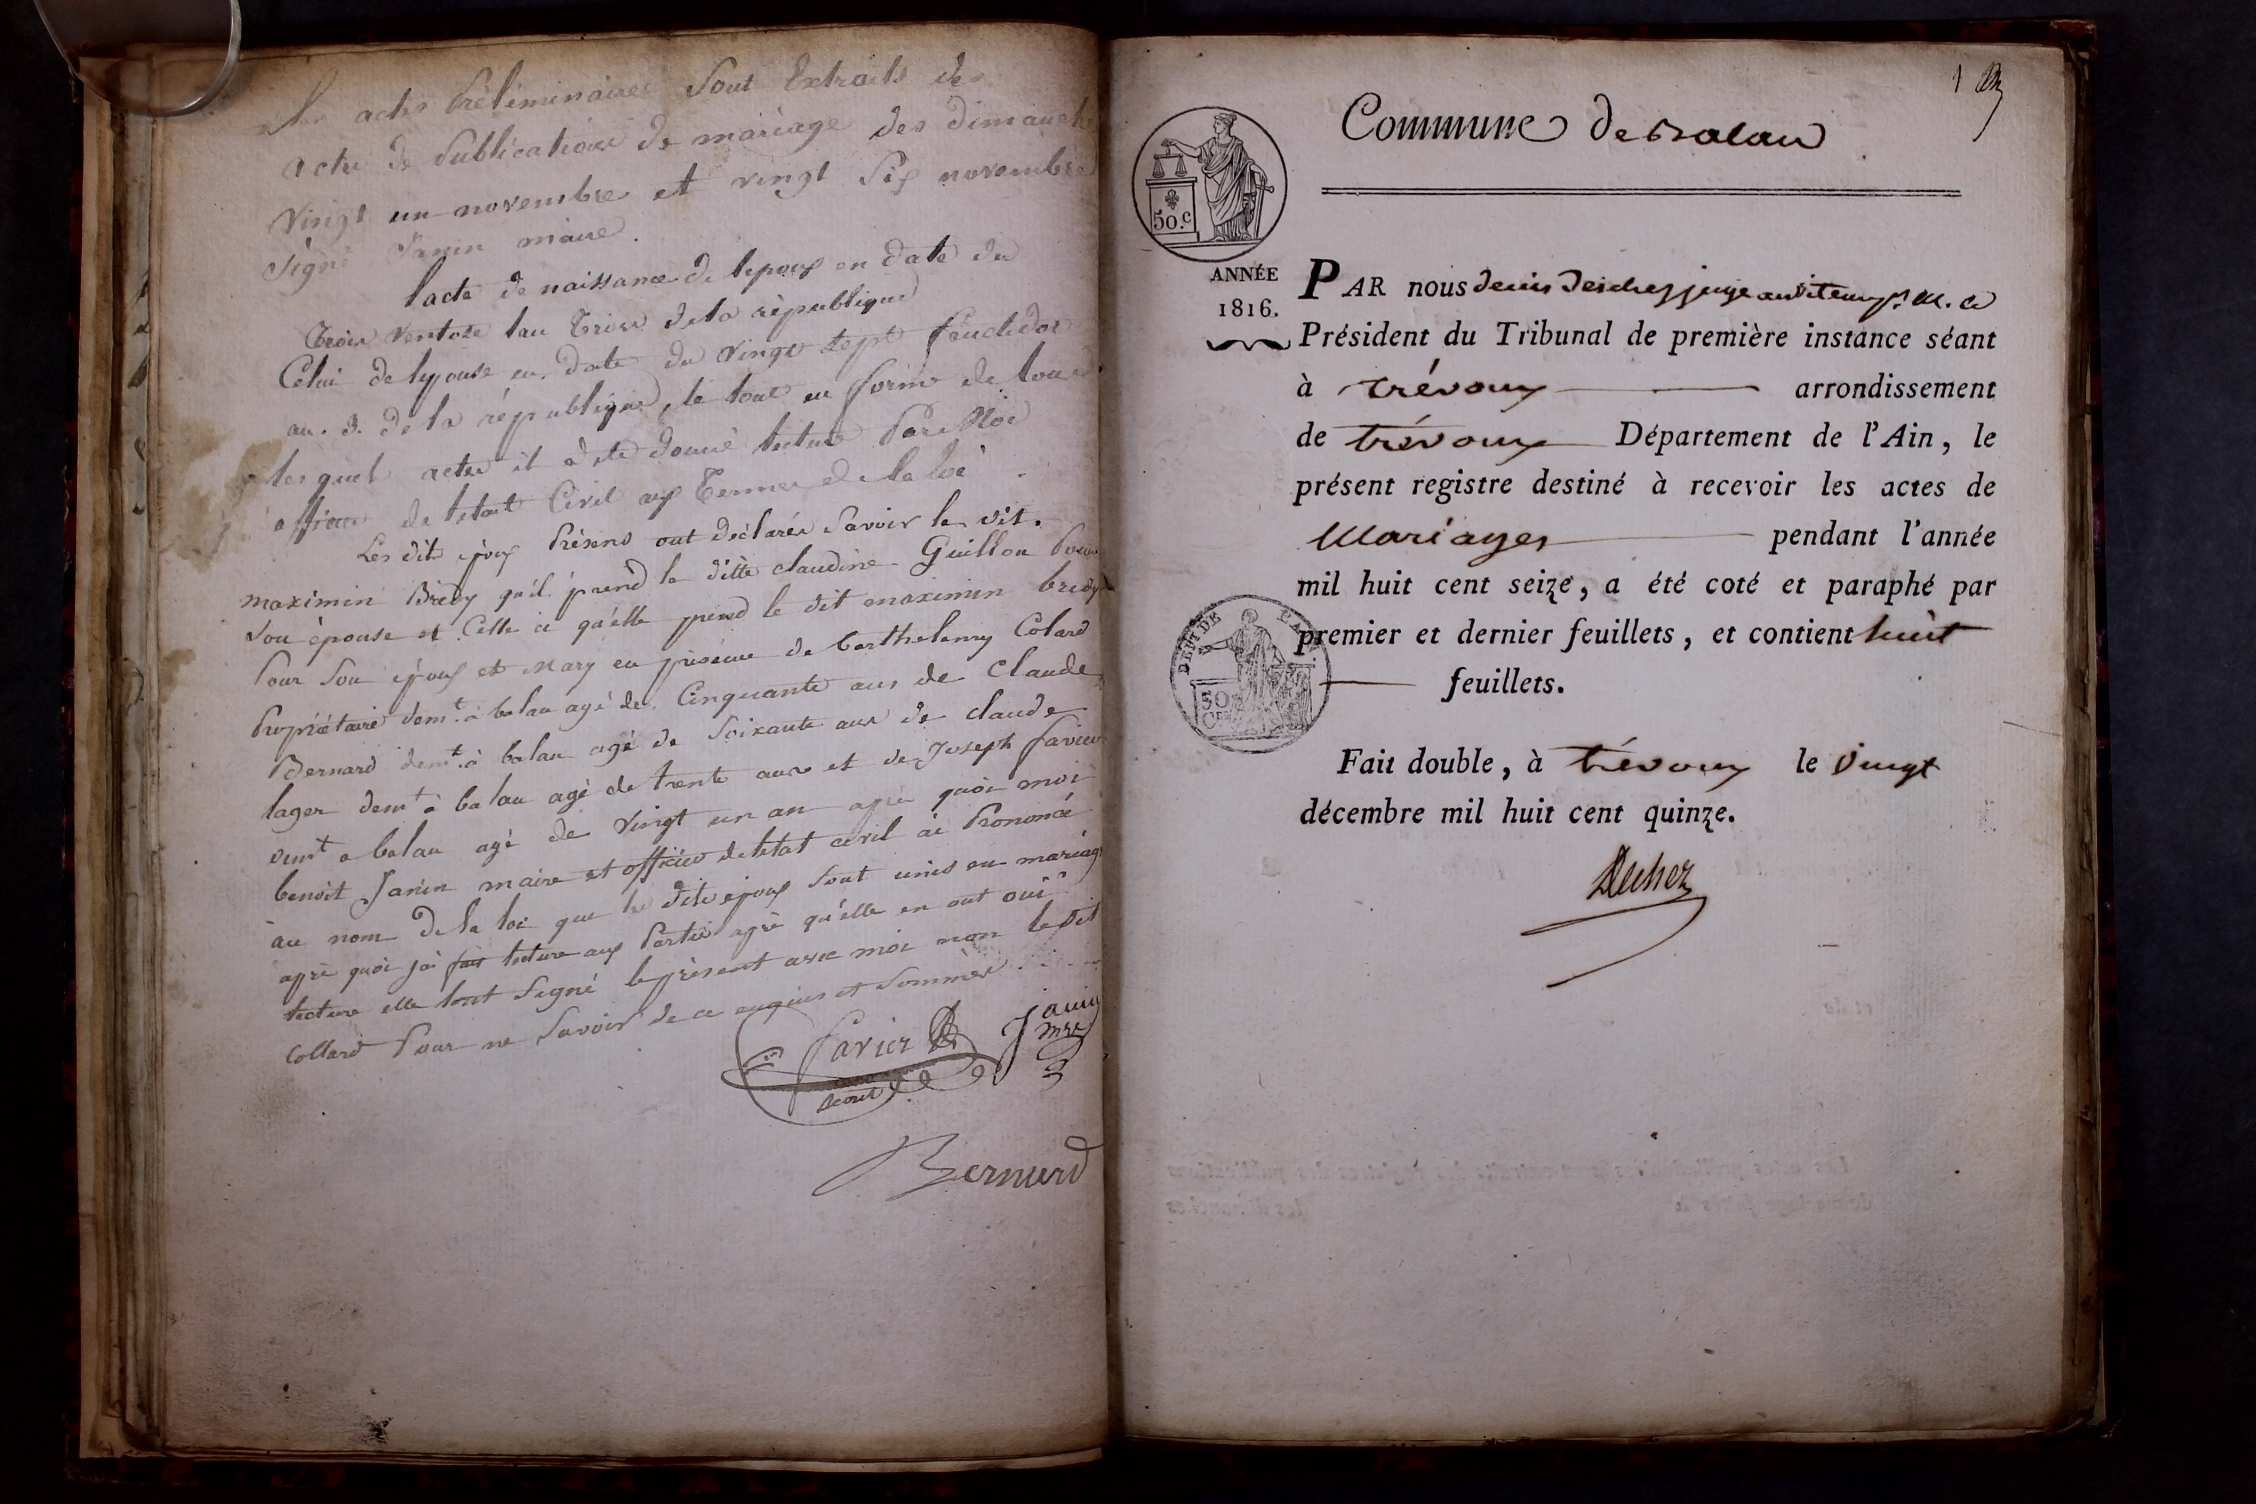 Les actes Préliminaires Sont Extraits des
actes de Publications de mariage des dimanche
Vingt un novembre et vingt Six novembre
Signé Janin maire.
l'acte de naissance de lepoux en date du
Trois Ventose lan Trois de la république
Celui de lepouse en date du vingt sept fructidor
an. 3. de la république, le tout en forme de tous
les quel actes il à été donné lecture Par Moi
officier de letat Civil aux Termes de la loi
Les dits epoux Présens ont déclarés Savoir le dit.
maximin Bredy qu'il prend la ditte claudine Guillon Pour
Son épouse et Celle ci qu'elle prend le dit maximin bredy
Pour Son époux et Mary en présence de barthelemy Colard
Propriétaire demt. à balan agé de Cinquante ans de Claude
Bernard demt. à balan agé de Soixante ans de claude
lager demt à balan agé de trente ans et de Joseph favier
demt a balan agé de Vingt un an après quoi moi
benoit Janin maire et officier de letat civil ai Prononcé
au nom de la loi que les dits epoux Sont unis en mariage
après quoi jai fait lecture aux Parties après qu'elle en ont oui
lecture elle lont Signé le présent avec moi non le dit
Collard Pour ne Savoir de ce enquis et Sommés
Favier
Janin
mre
Bernard
1
Commune de Balan
50.c
ANNÉE
1816.
PAR nous denis Deschez juge auditeur p. M. le
Président du Tribunal de première instance séant
à trévoux arrondissement
de trévoux Département de l'Ain, le
présent registre destiné à recevoir les actes de
Mariages pendant l'année
mil huit cent seize, a été coté et paraphé par
premier et dernier feuillets, et contient huit
feuillets.
Fait double, à trévoux le vingt
décembre mil huit cent quinze.
Dechez